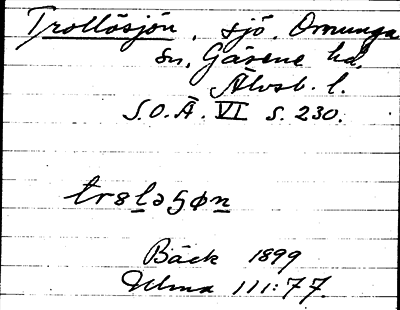 Trollösjön, sjö. Ornunga
sn. Gäsene hd.
Älvsb. l.
S.O.Ä. VI s. 230.
trɷlɘʂøn
Bäck 1899
Ulma 111:77.